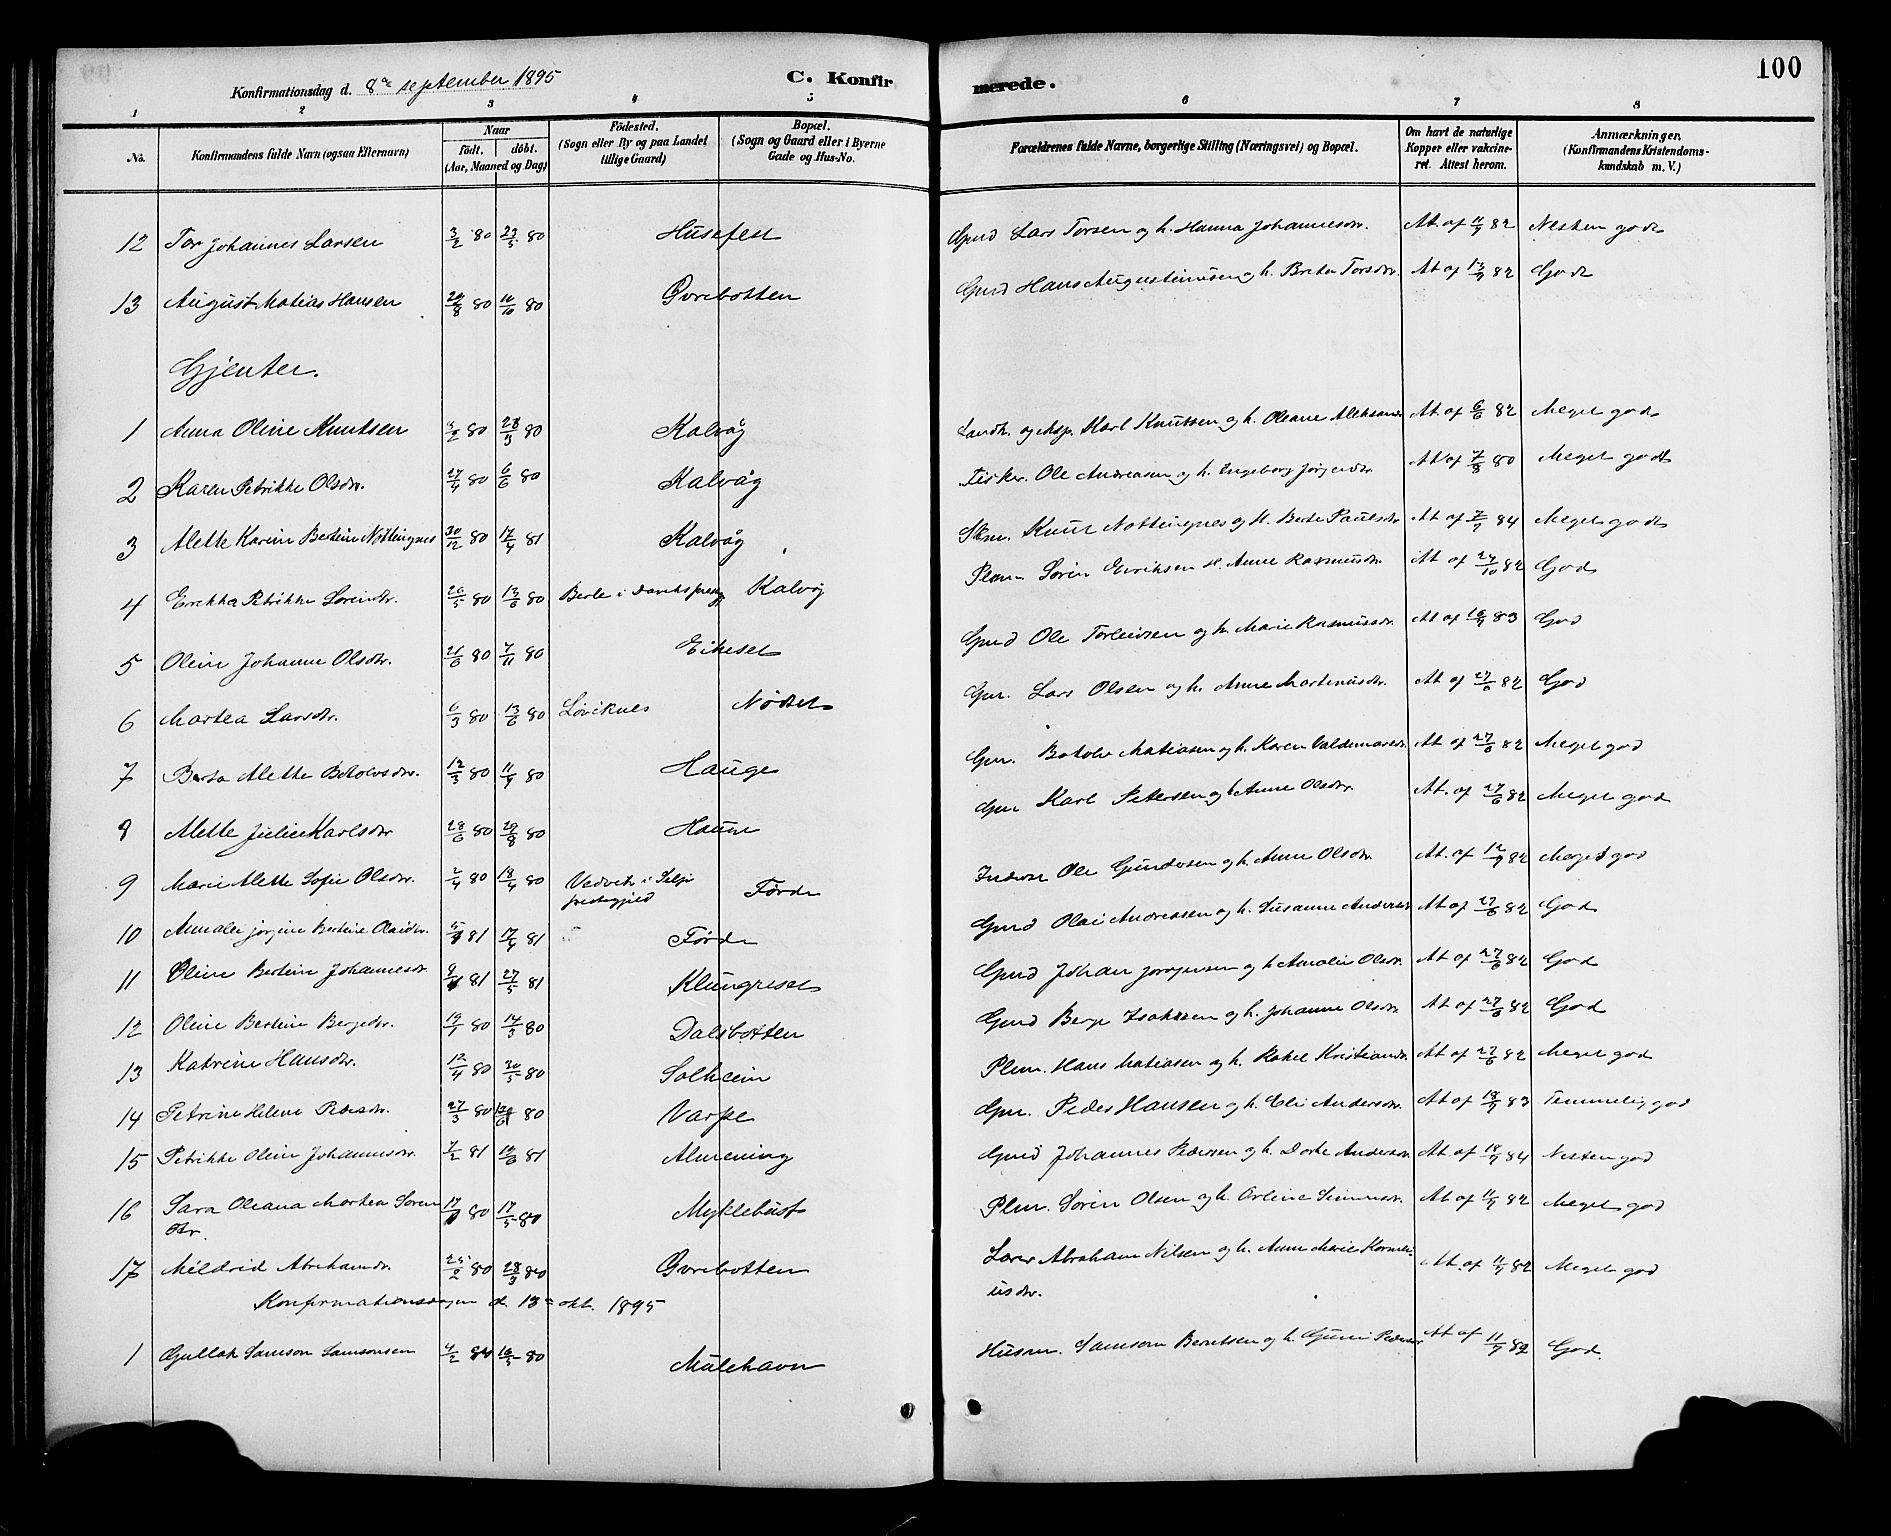 100
Konfirmationsdag d. 8de september 1895 C. Konfir merede.
1 2 3 4 5 6 7 8
No. Konfirmandens fulde Navn (ogsaa Efternavn) Naar født. døbt. (Aar, Maaned og Dag) Fødested. (Sogn eller By og paa Landet tillige Gaard) Bopæl. (Sogn og Gaard eller i Byerne Gade og Hus-No. Forældrenes fulde Navne, borgerlige Stilling (Næringsvei) og Bopæl. Om havt de naturlige Kopper eller vakcineret. Attest herom. Anmærkninger. (Konfirmandens Kristendomskundskab m. V.)
12 Tor Johannes Larsen 3/2 80 23/5 80 Husefest Gmd Lars Torsen og h. Hanna Johannesdr. At. af 11/9 82 Nesten godt
13 August Matias Hansen 29/8 80 10/10 80 Gvrebotten Gmd Hans Augustinusen og h. Brita Torsdr. At af 13/9 82 Godt
Gjenter.
1 Anna Oline Knutsen 80 28/3 80 Kalvåg Landh. og eksp. Karl Knutsen og h. Oleane Aleksandr At af 6/6 82 Meget godt
2 Karen Petrikke Olsdr. 27/4 80 6/6 80 Kalvåg Fisker. Ole Andreasen og h. Ingeborg Jørgendr. At af 7/8 80 Meget godt
3 Alette Karine Bertine Nøttingnes 30/12 80 17/4 81 Kalvåg Skm. Knut Nøttingnes og h. Berte Paulsdr At af 84 Meget godt
4 Erikka Petrikke Sørensdr. 20/5 80 13/6 80 Berle i Davikspresg Kalvåg Plsm Søren Eriksen h. Anne Rasmusdr. At af 27/10 82 God
5 Oline Johanne Olsdr. 21/6 80 7/11 80 Eikeset Gmd Ole Torleivsen og h. Marie Rasmusdr. At af 83 God
6 Martea Larsdr. 6/3 80 13/6 80 Løviknes Nødset Gm. Lars Olsen og h. Anne Martinusdr. At af 27/6 82 God
7 Berta Alette Botolvsdr. 12/3 80 11/4 80 Hauge Gm. Botolv Matiasen og h. Karen Valdemarsdr. At af 27/6 82 Meget god
8 Alette Julie Karlsdr 28/6 80 29/8 80 Hauge Gm Karl Petersen og h Anne Olsdr. At. af 27/6 82 Meget god
9 Marie Alette Sofie Olsdr. 2/4 80 18/4 80 Vedvik i Selje prestegjeld Førde Inderst Ole Gundersen og h. Anne Olsdr. At. af 12/9 82 Meget god
10 Annalie Jørgine Bertine Olaidr. 81 17/4 81 Førde Gmd Olai Andreasen og h. Susanne Andersdr At af 27/6 82 God
11 Oline Bertine Johannesdr 81 27/5 81 Klungreset Gmd Johan Jørgensen og h Amalie Olsdr. At af 27/6 82 God
12 Oline Bertine Bergedr. 80 14/3 80 Dalsbotten Gmd Berge Isaksen og h. Johanne Olsdr. At af 27/6 82 God
13 Katrine Hansdr. 12/4 80 30/5 80 Solheim Plsm. Hans Matiasen og h. Rakel Kristiandr. At af 27/6 82 Meget god
14 Petrine Helene Pedersdr. 27/3 80 80 Varpe Gm. Peder Hansen og h. Eli Andersdr. At af 18/9 83 Temmelig god
15 Petrikke Oline Johannesdr. 7/2 81 81 Almening Gmd Johannes Pedersen og h. Dorte Andersdr At af 84 Nesten god
16 Sara Oleana Martea Søren 80 17/5 80 Myklebust Plsm. Søren Olsen og h. Oline Simensdr. At af 11/9 82 Meget god
dtr.
17 Mildrid Abrahamsdr. 25/2 80 28/3 80 Gvrebotten Lærer Abraham Nilsen og h. Anne Marie Korneli At. af 11/9 82 Meget god
usdr.
Konfirmationsdagen d. 13de okt. 1895
1 Gullak Samson Samsonsen 80 16/5 80 Mulehavn Husm. Samson Berntsen og h. Guni Pedersdr At af 11/9 82 God.